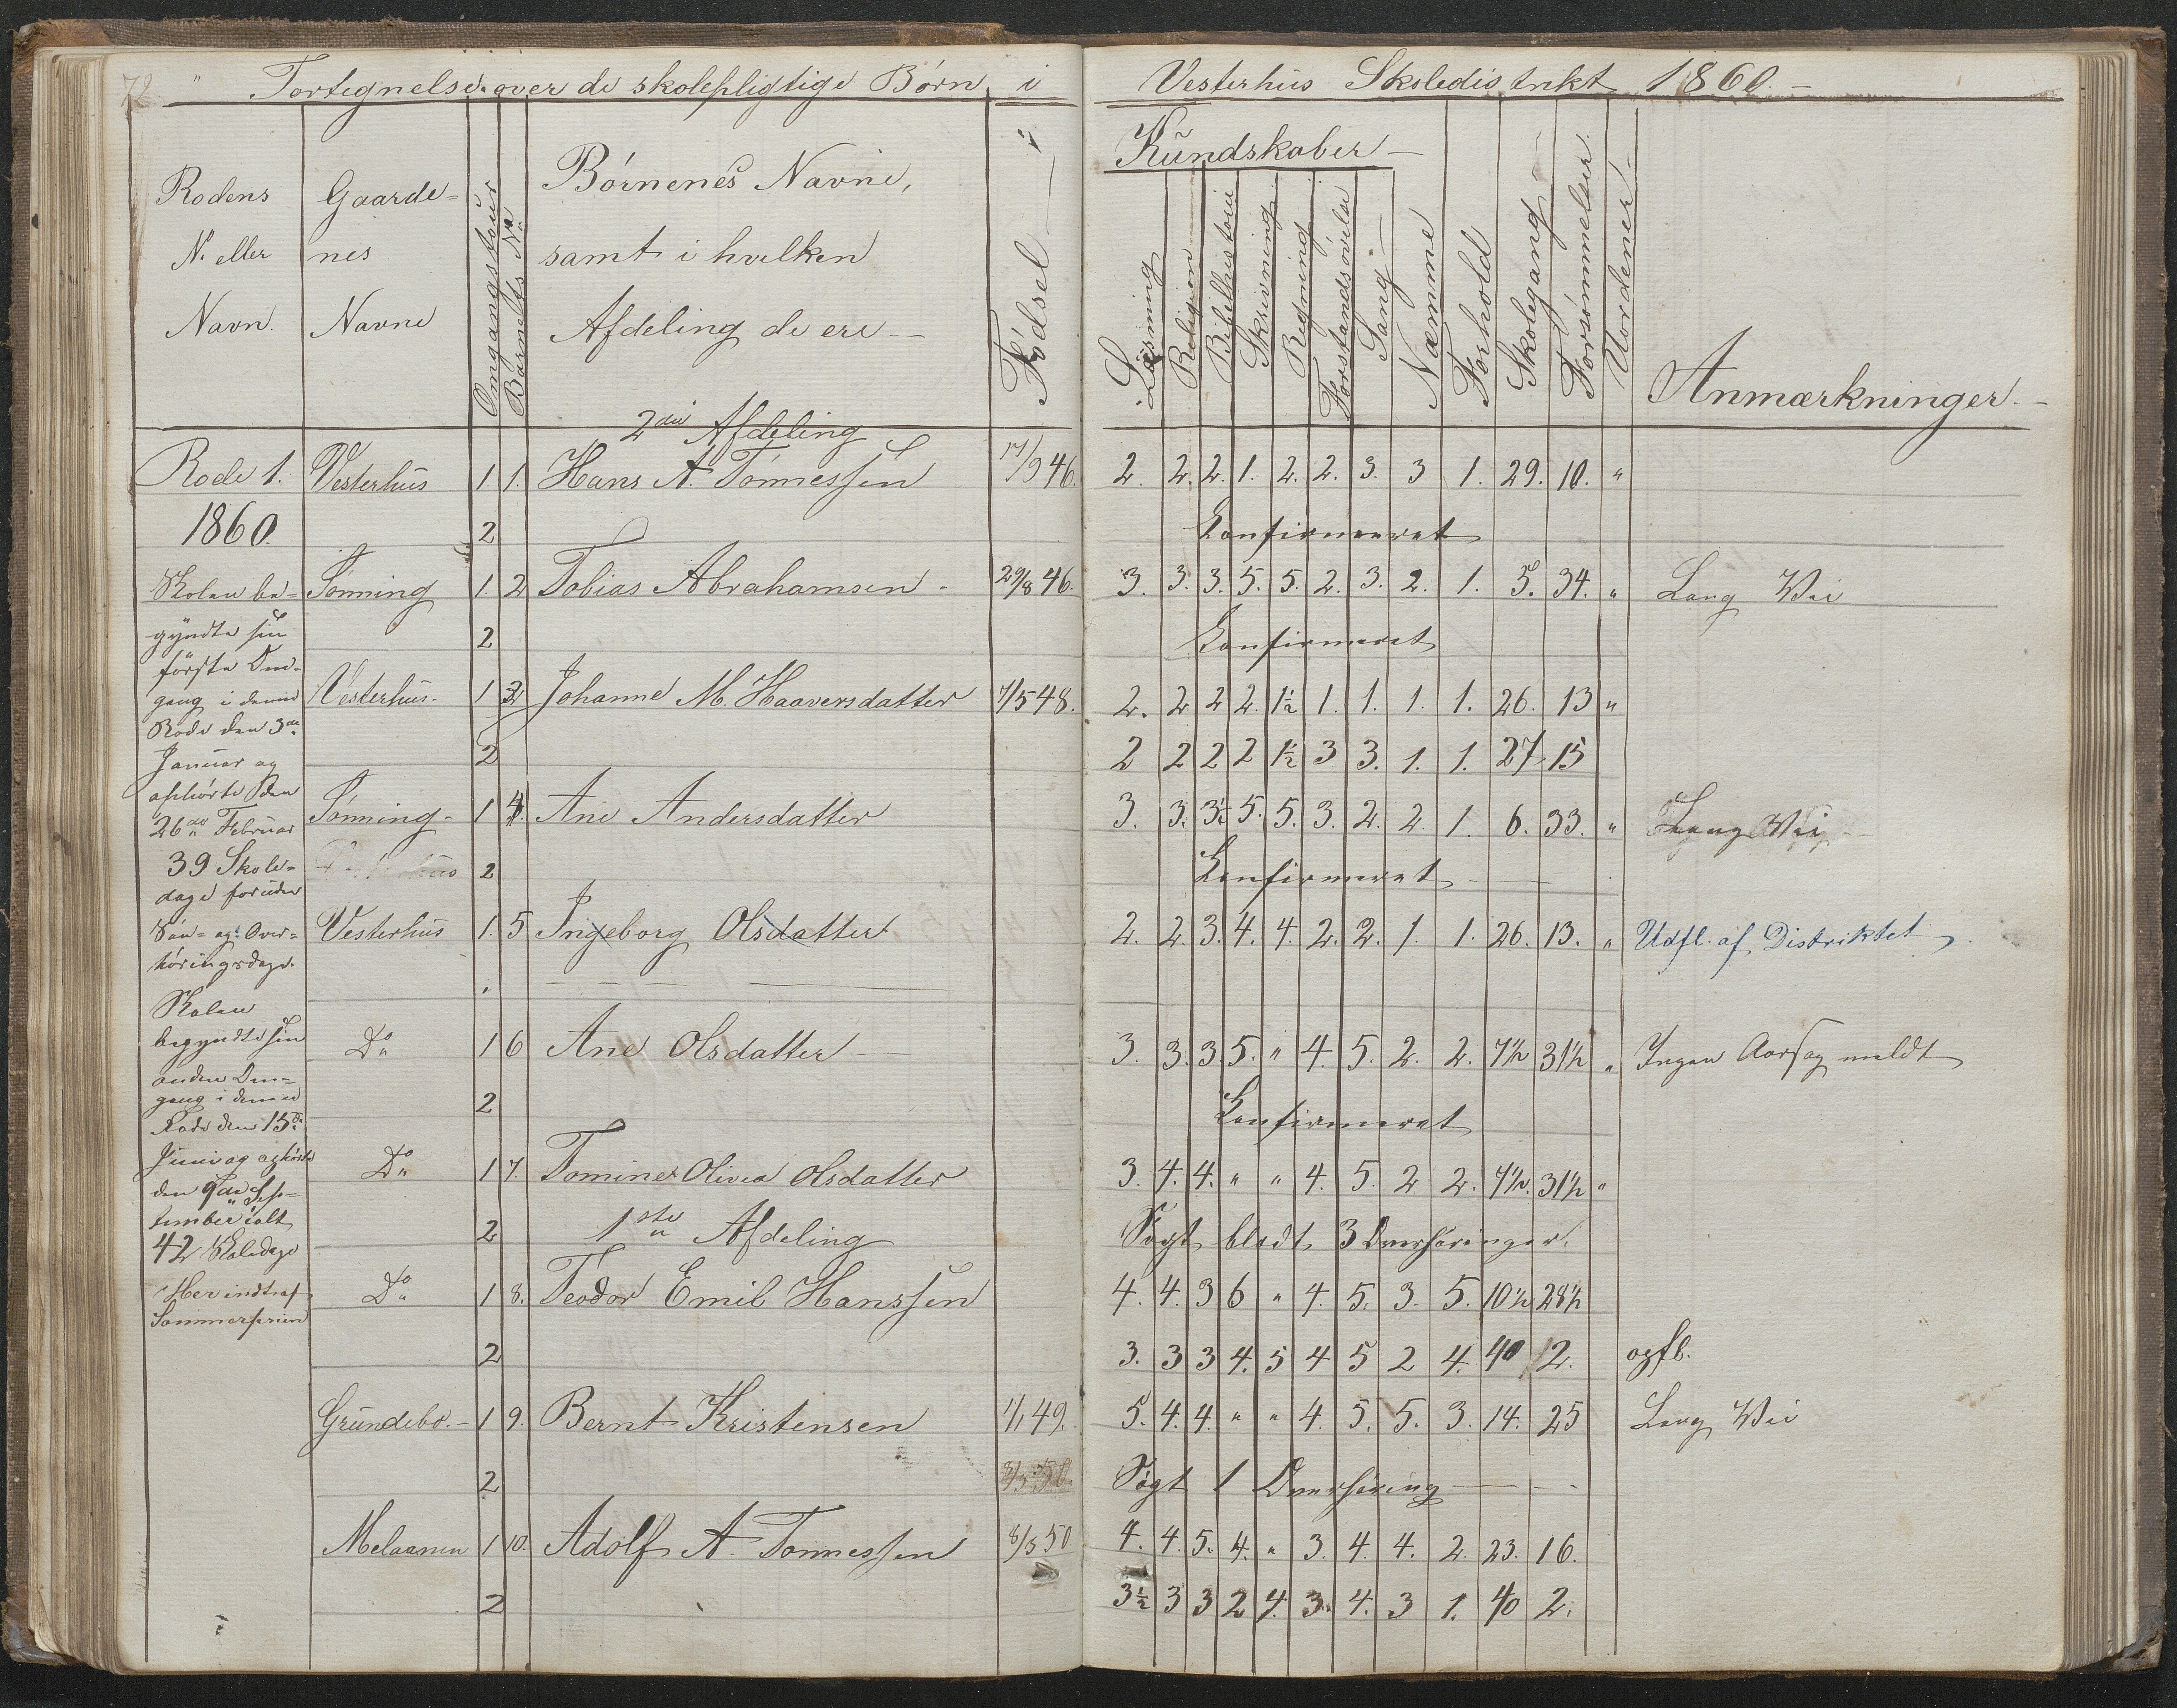 72 " Fortegnelse over de skolepligtige Børn i Vesterhus Skoledistrikt 1860. –
Rodens N. eller Navn.
Gaardenes Navne
Omgangstour
Barnets No
Børnenes Navne, samt i hvilken Afdeling de ere –
Fødsel
Kundskaber –
Læsning
Religion
Bibelhistorie
Skrivning
Regning
Forstandsøvelse
Sang
Nemme
Forhold
Skolegang
Forsømmelser
Uordener
Anmærkninger. –
2den Afdeling
Rode 1. Vesterhus 1 1. Hans A. Tønnessen 17/9 46. 2. 2. 2. 1. 2. 2. 3. 3 1. 29. 10. "
1860. 2 Konfirmeret
Sønning 1. 2 Tobias Abrahamsen - 29/8 46. 3. 3. 3. 5. 5. 2. 3. 2. 1. 5. 34. " Lang Vei
2 Konfirmeret
Vesterhus. 1 3 Johanne M. Haaversdatter 7/5 48. 2. 2 2 2. 1½ 1. 1. 1. 1. 26. 13 "
2 2 2 2 2 1½ 3 3. 1. 1. 27 15
Sønning - 1 4. Ane Andersdatter 3. 3. 3½ 5. 5. 3. 2. 2. 1. 6. 33. " Lang Vei
2 Konfirmeret –
Vesterhus 1. 5 Ingeborg Olsdatter 2. 2. 3. 4. 4. 2. 2. 1. 1. 26. 13. " Udfl. af Distriktet
Do 1 6 Ane Olsdatter – 3. 3. 3. 5. " 4. 5. 2. 2. 7½ 31½ " Ingen Aarsag meldt
2 Konfirmeret
Do 1 7. Tomine Olivea Olsdatter 3. 4. 4. " " 4. 5. 2 2. 7½. 31½ "
2 1ste Afdeling Søgt blodt 3 Overhøringer.
Do 1 8. Teodor Emil Hanssen 4. 4. 3 6 " 4. 5. 3. 5. 10½ 28½
2 3. 3 3 4. 5 4 5 2 4. 40 2. opfl.
Grundebo. - 1 9. Bernt Kristensen 1/1 49. 5. 4. 4. " " 4. 5. 5. 3. 14. 25 Lang Vei
2 Søgt 1 Overhøring
Melaanen 1 10. Adolf A. Tønnessen 8/5 50 4. 4. 5. 4. " 3. 4. 4. 2. 23. 16.
2 3½ 3 3 2 4. 3. 4. 3 1. 40 2.
Skolen be-
gyndte sin
første Om-
gang i denne
Rode den 3de
Januar og
ophørte den
26de Februar
39 Skole-
dage foruden
Søn- og Over-
høringsdage.
Skolen
begyndte sin
anden Om-
gang i denne
Rode den 15de
Juni og ophørte
den 9de Sep-
tember ialt
42 Skoledage
Her indtraf
Sommerferien